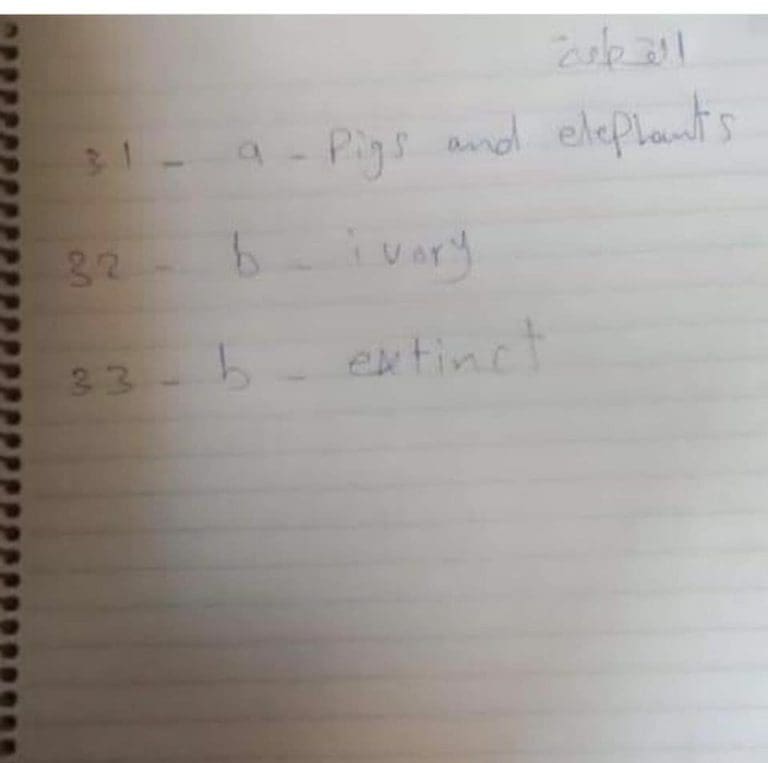 القطعة
31 - a - Pigs and elephants
32 - b - ivory
33 - b - extinct